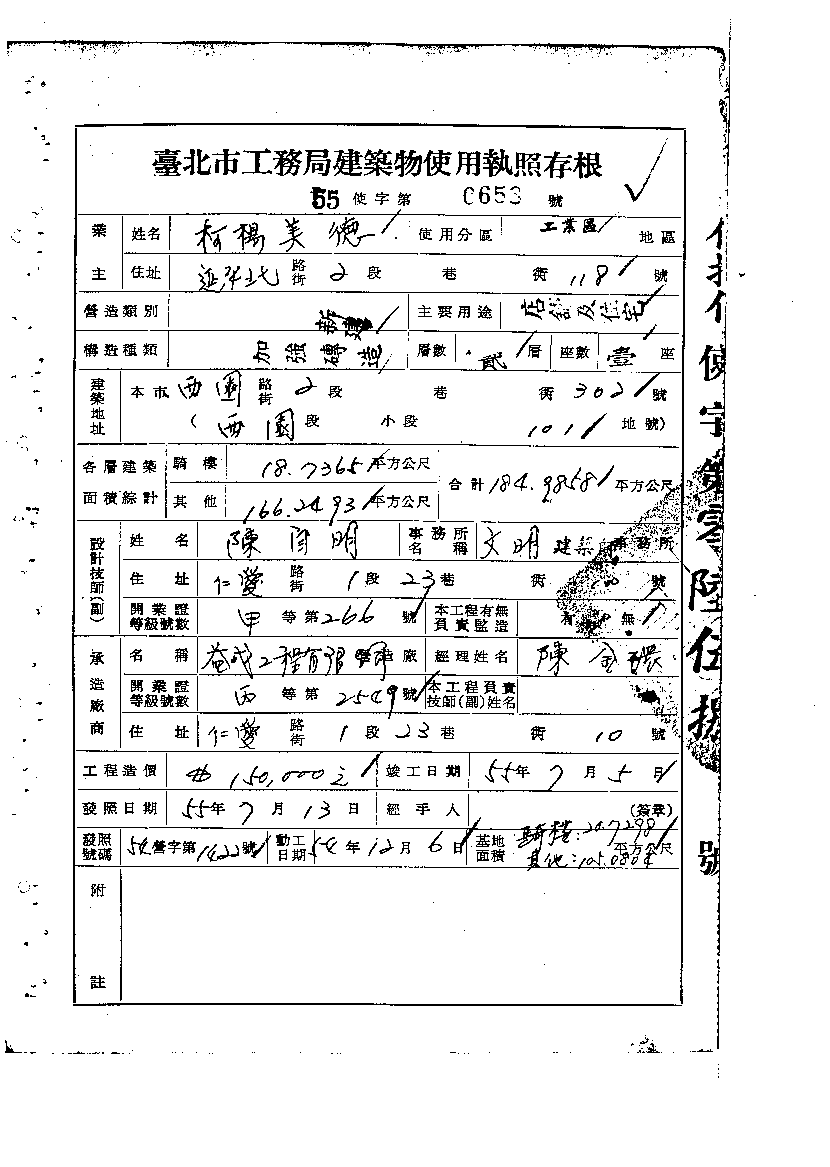 臺北市工務局建築物使用執照存根
55 使字第 0653 號
業主 姓名 柯楊美德 使用分區 工業區 地區
住址 延平北 路街 2 段 巷 街 118 號
營造類別 新建 主要用途 店舖及住宅
構造種類 加強磚造 層數 貳 層 座數 壹 座
建築地址 本市 西園 路街 2 段 巷 街 302 號
( 西園 段 小段 101 地號)
各層建築面積綜計 騎樓 18.7365 平方公尺 合計 184.9858 平方公尺
其他 166.2493 平方公尺
設計技師(副) 姓名 陳 明 事務所名稱 文明 建築 事務所
住址 仁愛 路街 1 段 23 巷 街 號
開業證等級號數 甲 等第 266 號 本工程有無負責監造 有 無
承造廠商 名稱 益成工程有限 廠 經理姓名 陳金
開業證等級號數 丙 等第 2549 號 本工程負責技師(副)姓名
住址 仁愛 路街 1 段 23 巷 街 10 號
工程造價 150,000元 竣工日期 55年 7 月 5 日
發照日期 55年 7 月 13 日 經手人 (簽章)
發照號碼 54營字第1422號 動工日期 54年 12月 6日 基地面積 騎樓:20.7298 其他:105.0804 平方公尺
附註
使字第零陸伍 號